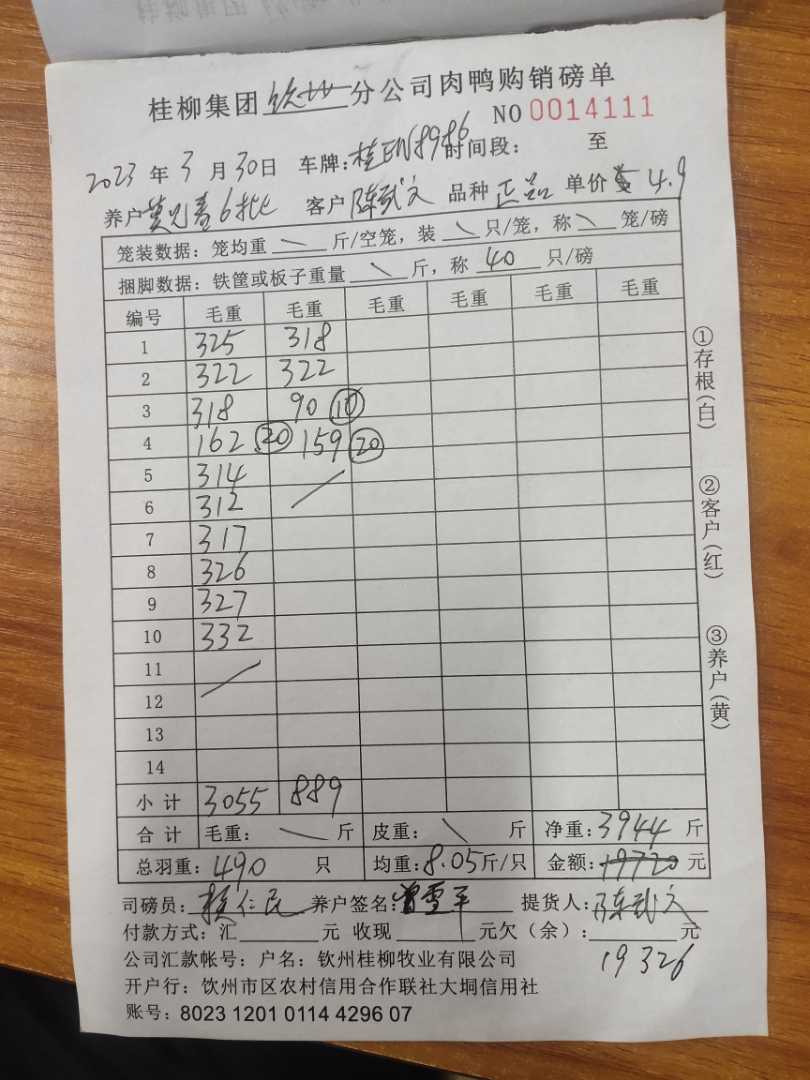 桂柳集团 钦州 分公司肉鸭购销磅单
NO 0014111
2023 年 3 月 30 日 车牌: 时间段: 至
养户 6批 客户 陈武文 品种 正品 单价 4.9
笼装数据: 笼均重 \ 斤/空笼, 装 \ 只/笼, 称 \ 笼/磅
捆脚数据: 铁筐或板子重量 \ 斤, 称 40 只/磅
编号 毛重 毛重 毛重 毛重 毛重 毛重
1 325 318
2 322 322
3 318 90 ⑩
4 162 ⑳ 159 ⑳
5 314
6 312 /
7 317
8 326
9 327
10 332
11
12 /
13
14
小计 3055 889
合计 毛重: \ 斤 皮重: \ 斤 净重: 3944 斤
总羽重: 490 只 均重: 8.05 斤/只 金额: 19720 元
司磅员: 养户签名: 曾雪平 提货人: 陈武文
付款方式: 汇 元 收现 元欠(余): 元
19326
公司汇款帐号: 户名: 钦州桂柳牧业有限公司
开户行: 钦州市区农村信用合作联社大垌信用社
账号: 8023 1201 0114 4296 07
①存根(白)
②客户(红)
③养户(黄)